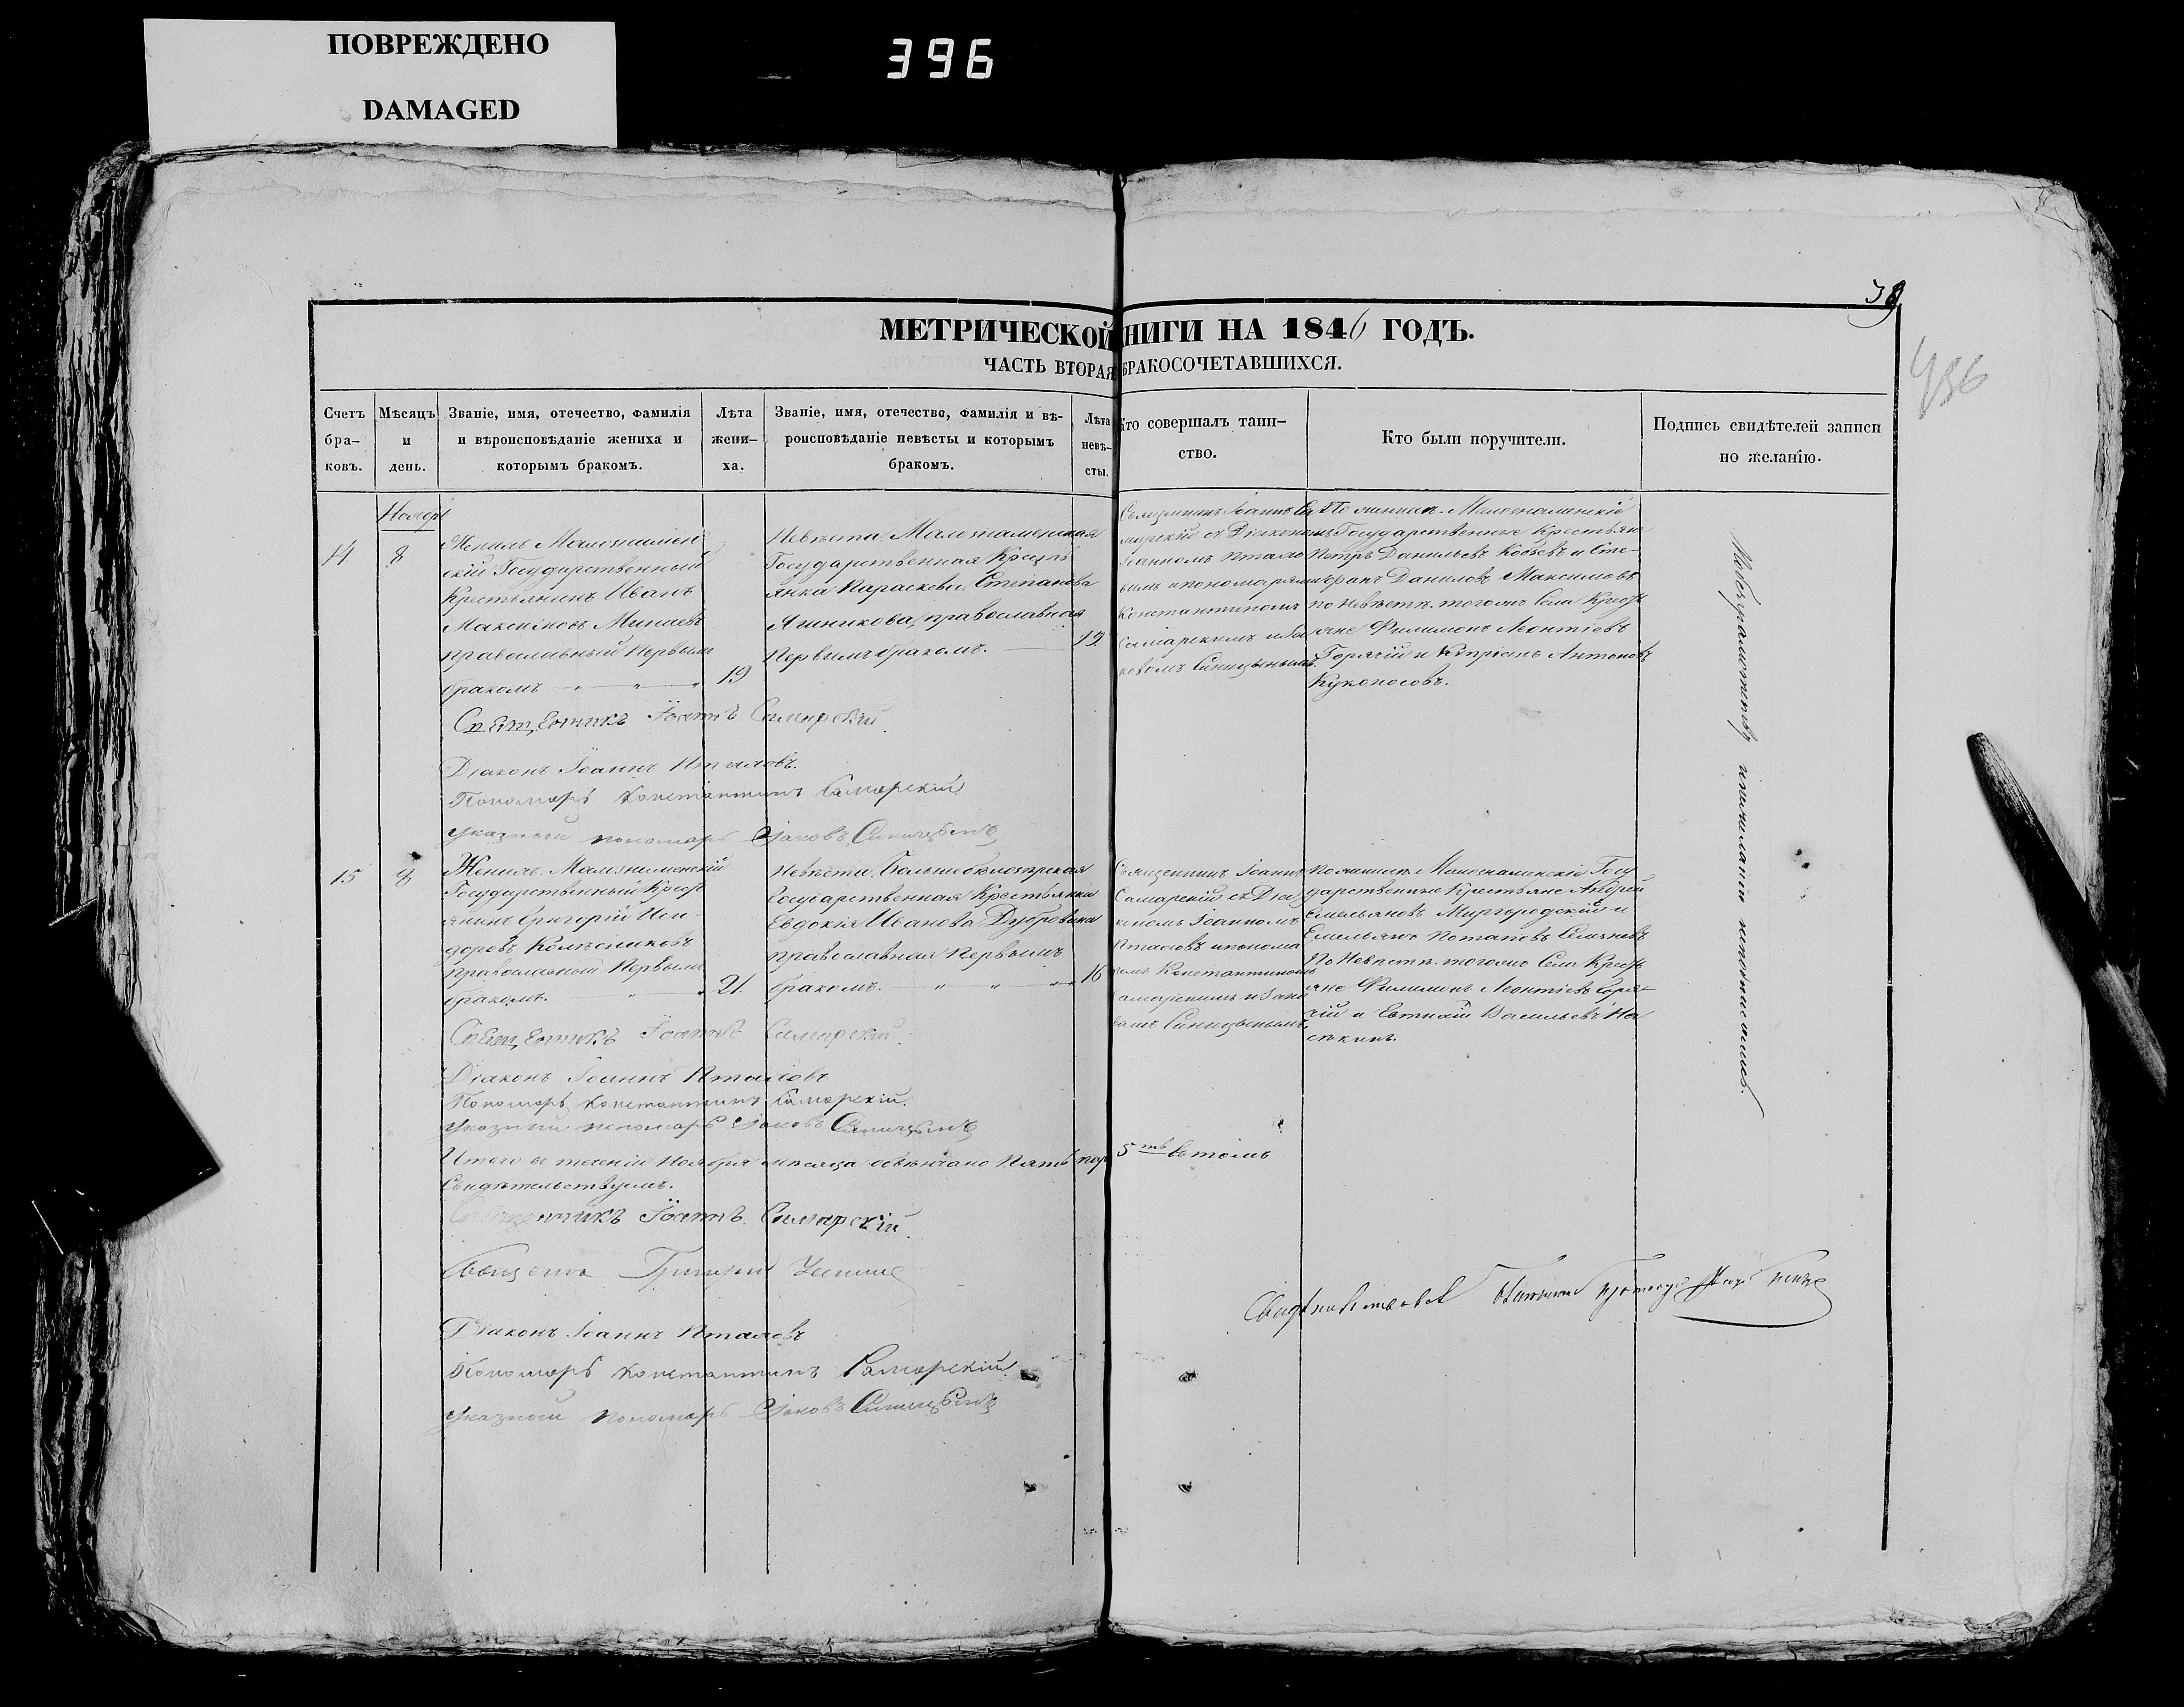 ПОВРЕЖДЕНО
DAMAGED
396
38
436
МЕТРИЧЕСКОЙ НИГИ НА 1846 ГОДЪ.
ЧАСТЬ ВТОРАЯ БРАКОСОЧЕТАВШИХСЯ.
Счетъ бра- ковъ.
Мѣсяцъ и день.
Званіе, имя, отечество, фамилія и вѣроисповѣданіе жениха и которымъ бракомъ.
Лѣта жени- ха.
Званіе, имя, отечество, фамилія и вѣ- роисповѣданіе невѣсты и которымъ бракомъ.
Лѣта невѣ- сты.
Кто совершалъ таин- ство.
Кто были поручители.
Подпись свидѣтелей записи по желанію.
Ноябрь
14
8
Женихъ Малознамен
скій Государственный
Крестьянинъ Иванъ
Максимовъ Минаевъ
православный Первымъ
бракомъ
19
Невѣста Малознаменская
Государственная Кресть
янка Параскева Степанова
Яшникова, православная
Первымъ бракомъ.
19
Священникъ Іоаннъ Са
марскій съ Діакономъ
Іоанномъ Птало
вымъ и пономарями
Константиномъ
Самарскимъ и Іа
ковомъ Синицынымъ
По женихѣ Малознаменскіе
Государственные Крестьяне
Петръ Данильевъ Кобзевъ и Сте-
фанъ Даниловъ Максимовъ
по Невѣстѣ тогожъ Села Крест
яне Филимонъ Леонтіевъ
Горячій и Кипріянъ Антоновъ
Куконосовъ.
Священникъ Іоаннъ Самарскій
Діаконъ Іоаннъ Пталовъ.
Пономарь Константинъ Самарскій
Указный пономарь Іаковъ Синицынъ
15
8
Женихъ Малознаменскій
Государственный Крест
янинъ Григорій Иси-
доровъ Колѣсниковъ
православный Первымъ
бракомъ.
21.
Невѣста Большебелозерская
Государственная Крестьянка
Евдокія Иванова Дубровина
православная Первымъ
бракомъ.
16
Священникъ Іоаннъ
Самарскій съ Діа
кономъ Іоанномъ
Пталовъ и понома
ремъ Константиномъ
Самарскимъ и Іако
вомъ Синицынымъ
По женихѣ Малознаменскіе Госу
дарственные Крестьяне Андрей
Емельяновъ Миргородскій и
Емельянъ Потаповъ
По Невѣстѣ тогожъ Села Крест
яне Филимонъ Леонтіевъ Горя-
чій и Евтихій Васильевъ На
сѣкинъ.
Священникъ Іоаннъ Самарскій.
Діаконъ Іоаннъ Пталовъ
Пономарь Константинъ Самарскій.
Указный пономарь Іаковъ Синицынъ
Итого въ теченіи Ноября мѣсяца обвѣнчано Пять пар 5ть въ томъ
Свидѣтельствуемъ.
Священникъ Іоаннъ Самарскій.
Григорій
Діаконъ Іоаннъ Пталовъ
Пономарь Константинъ Самарскій
Указный пономарь Іаковъ Синицынъ
Свидѣтельствовалъ